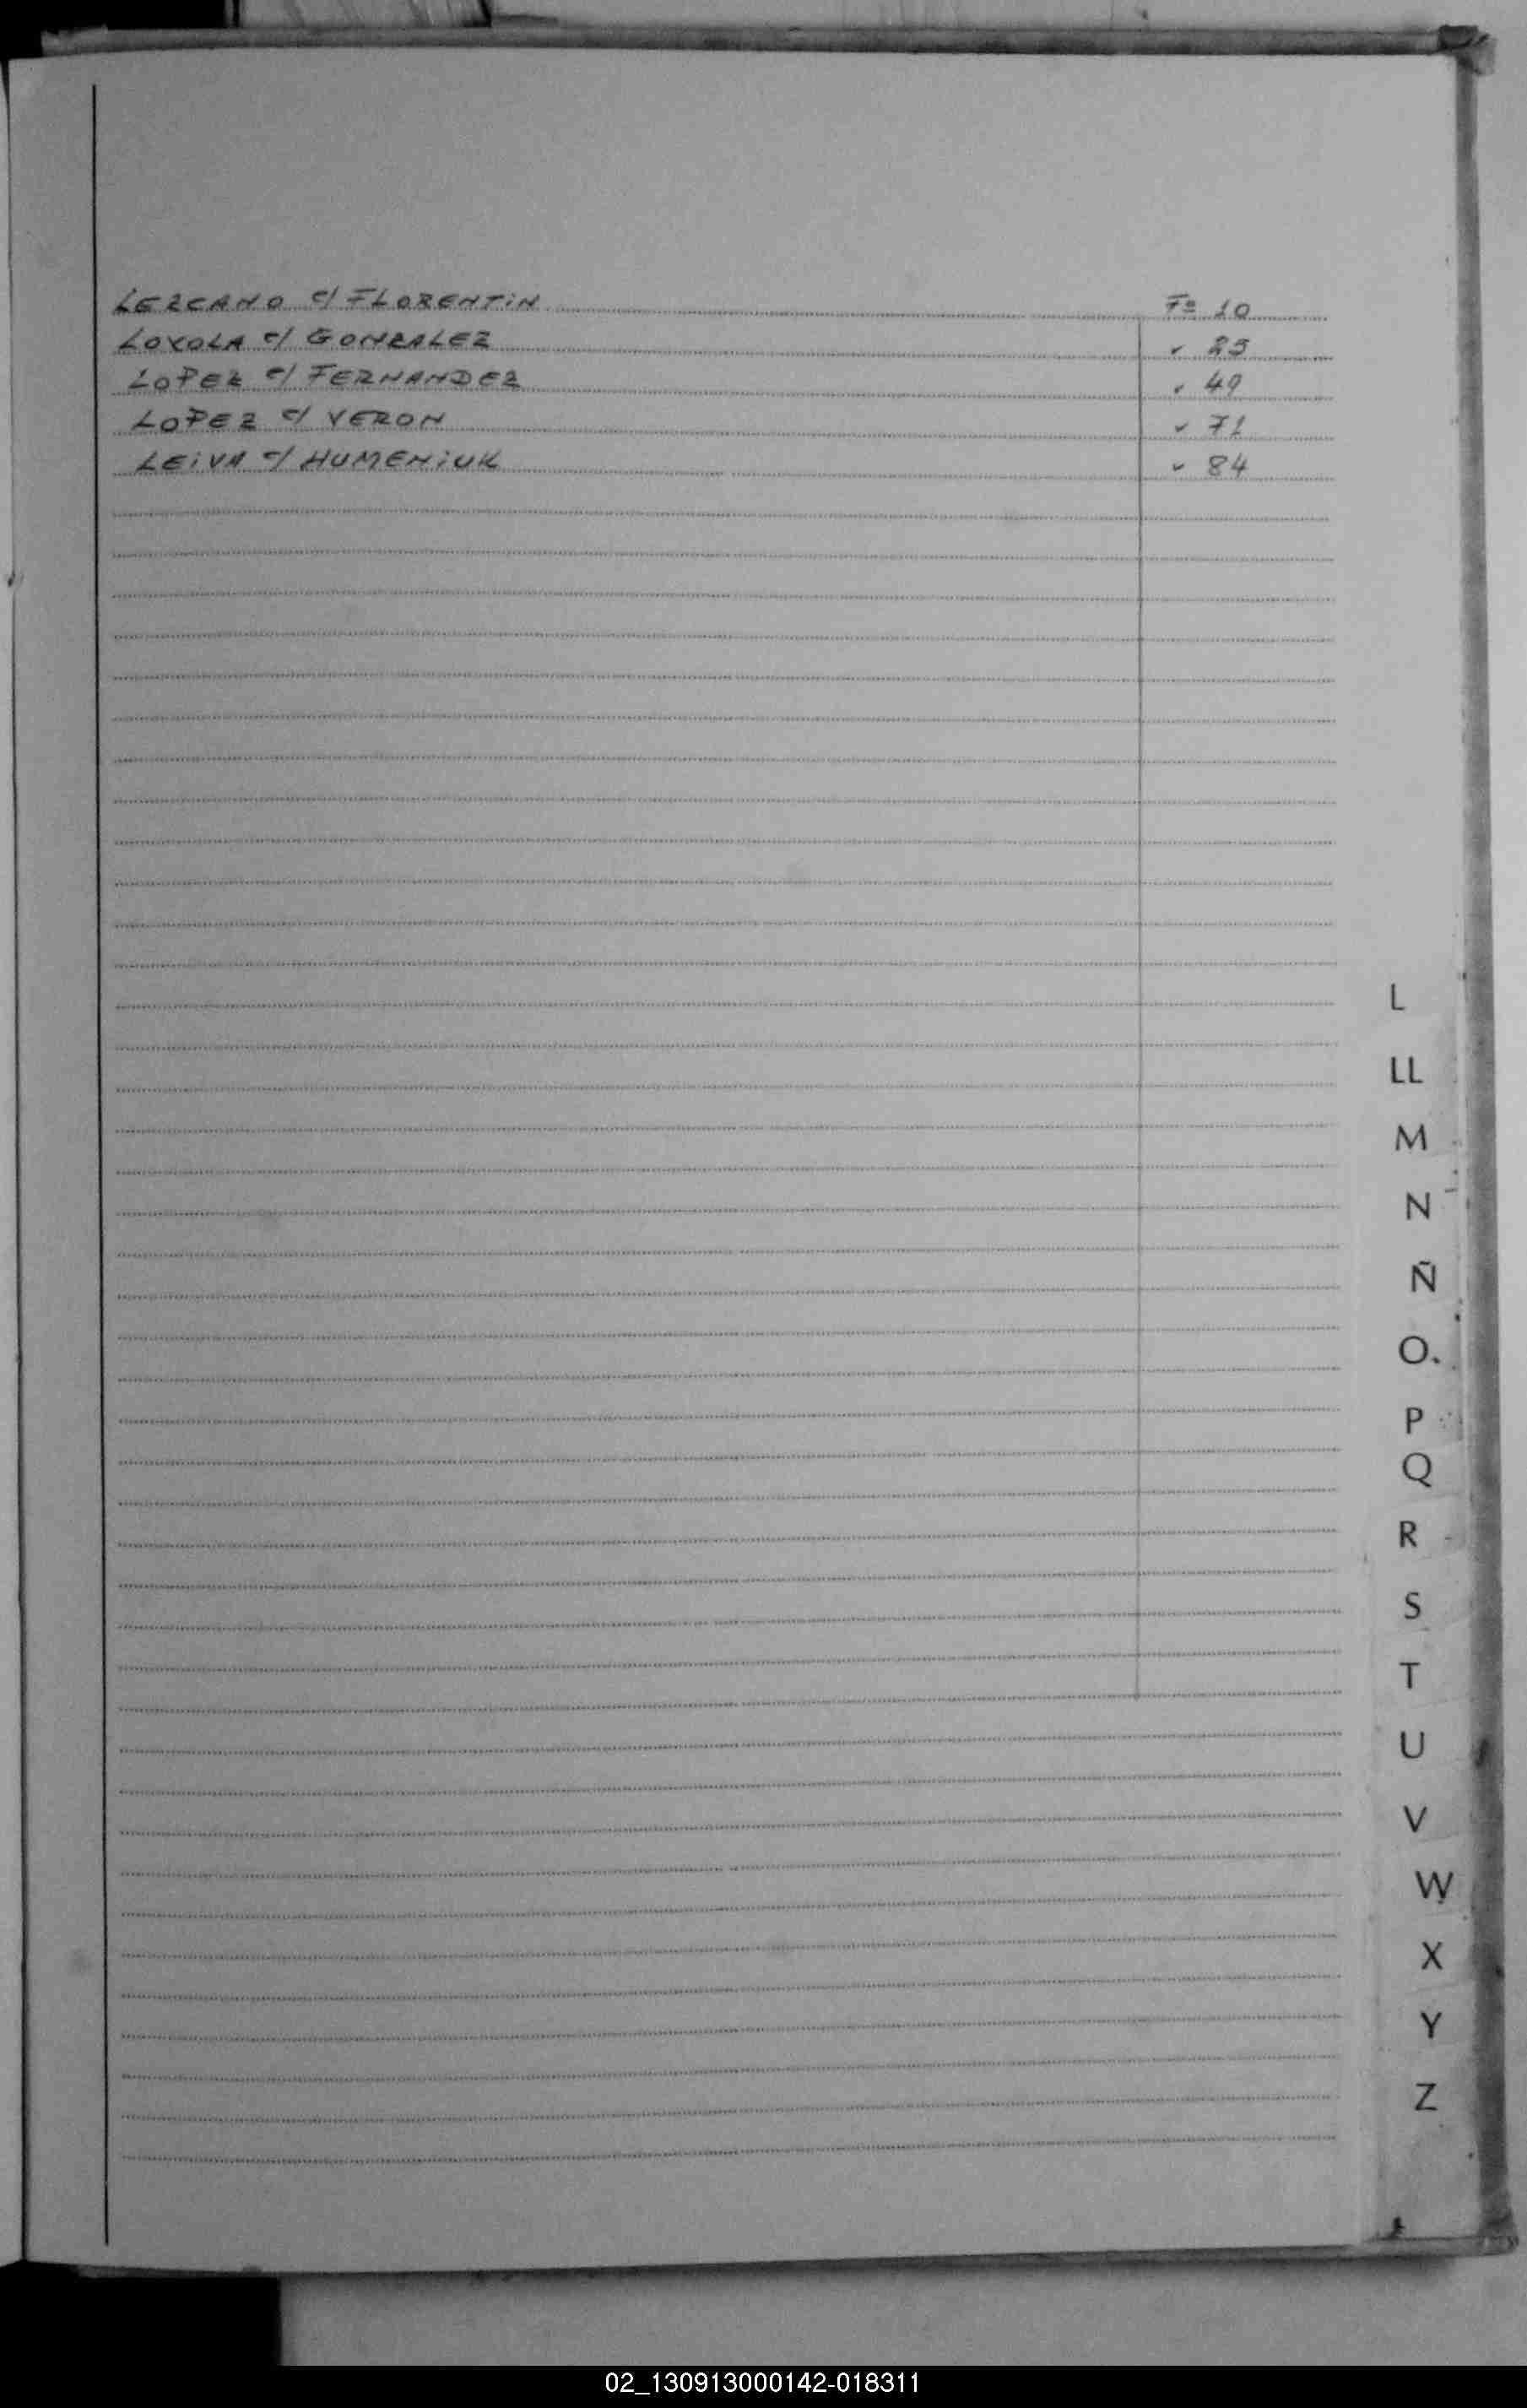 LEZCANO c/ FLORENTIN Fº 10
LOYOLA c/ GONZALEZ " 25
LOPEZ c/ FERNANDEZ " 49
LOPEZ c/ VERON " 71
LEIVA c/ HUMENIUK " 84
L
LL
M
N
Ñ
O
P
Q
R
S
T
U
V
W
X
Y
Z
02_130913000142-018311